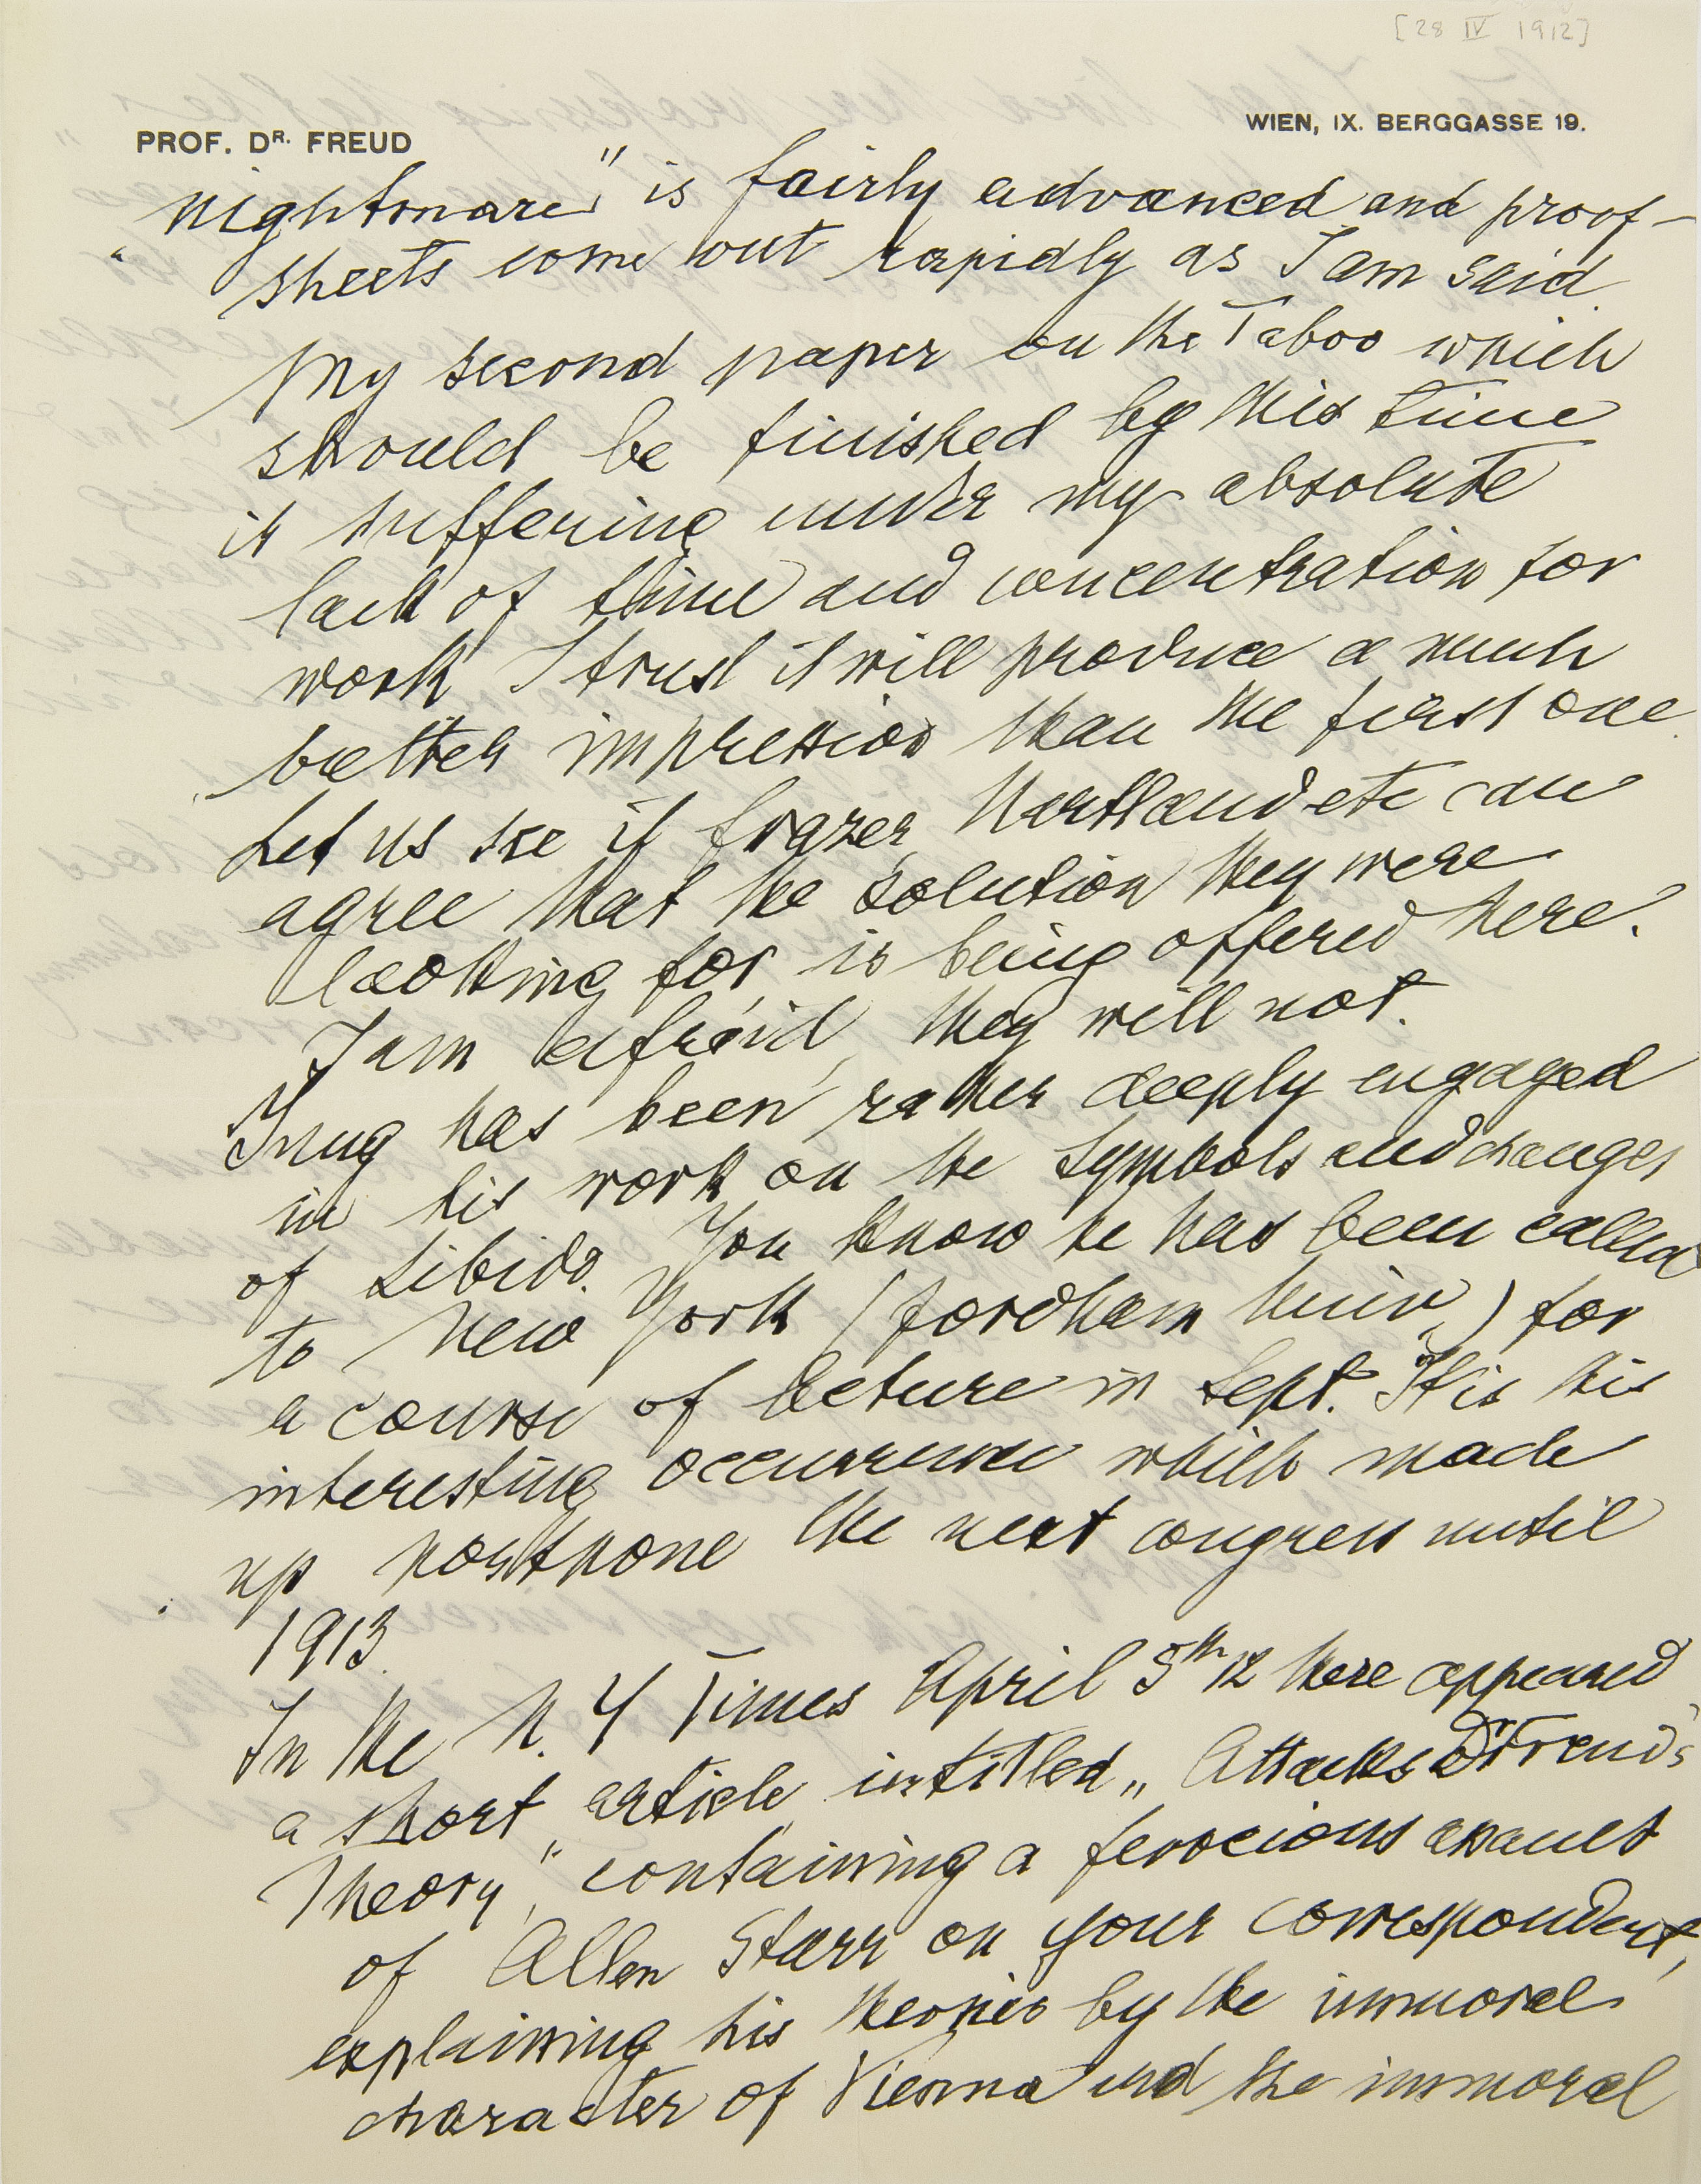 [28 IV 1912]
PROF. DR. FREUD
WIEN, IX. BERGGASSE 19.
nightmare" is fairly advanced and proof-
sheets come out rapidly as I am said.
My second paper on the Taboo which
should be finished by this time
is suffering under my absolute
lack of time and concentration for
work I trust it will produce a much
better impression than the first one.
Let us see if Frazer, Hartland etc can
agree that the solution they were
looking for, is being offered here.
I am afraid, they will not.
Jung has been rather deeply engaged
in his work on the Symbols and changes
of Libido. You know he has been called
to New York (Fordham Univ.) for
a course of lecture in Sept. It is this
interesting occurrence which made
up postpone the next congress until
1913.
In the N. Y Times April 5th 12 there appeared
a short article intitled „Attacks Dr Freud's
Theory", containing a ferocious assault
of Allen Starr on your correspondent,
explaining his theories by the immoral
character of Vienna and the immoral